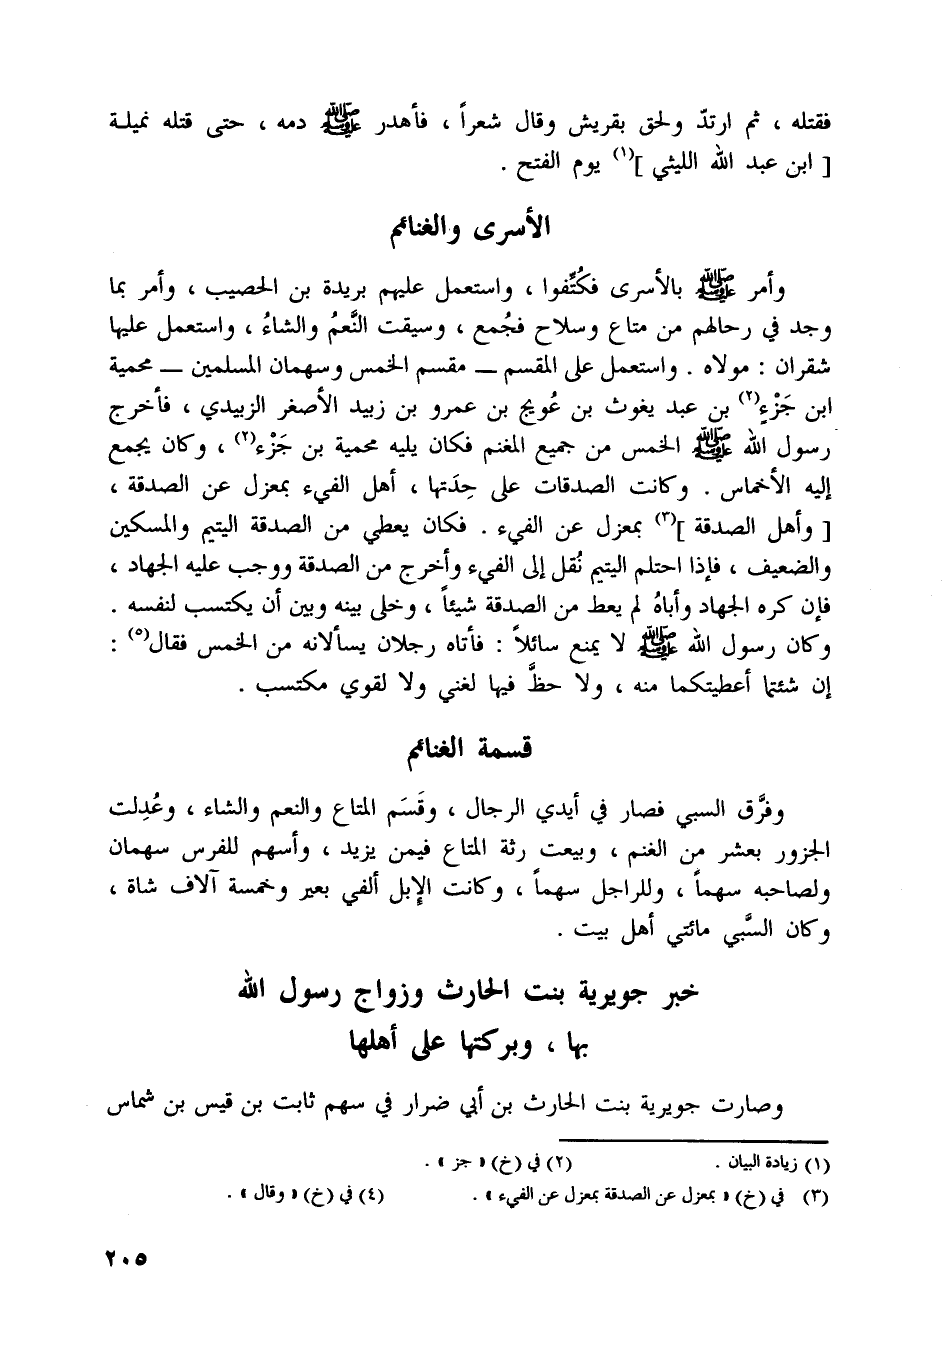 فقتله ، ثم ارتدّ ولحق بقريش وقال شعراً ، فأهدر ﷺ دمه ، حتى قتله نميلـة
[ ابن عبد الله الليثي ](١) يوم الفتح .
الأسرى والغنائم
وأمر ﷺ بالأسرى فكُتِّفوا ، واستعمل عليهم بريدة بن الحصيب ، وأمر بما
وجد في رحالهم من متاع وسلاح فجُمع ، وسيقت النَّعمُ والشاءُ ، واستعمل عليها
شقران : مولاه . واستعمل على المقسم ــ مقسم الخمس وسهمان المسلمين ــ محمية
ابن جَزْءٍ(٢) بن عبد يغوث بن عُويج بن عمرو بن زبيد الأصغر الزبيدي ، فأخرج
رسول الله ﷺ الخمس من جميع المغنم فكان يليه محمية بن جَزْء(٢) ، وكان يجمع
إليه الأخماس . وكانت الصدقات على حِدَتها ، أهل الفيء بمعزل عن الصدقة ،
[ وأهل الصدقة ](٣) بمعزل عن الفيء . فكان يعطي من الصدقة اليتيم والمسكين
والضعيف ، فإذا احتلم اليتيم نُقل إلى الفيء وأخرج من الصدقة ووجب عليه الجهاد ،
فإن كره الجهاد وأباهُ لم يعط من الصدقة شيئاً ، وخلى بينه وبين أن يكتسب لنفسه .
وكان رسول الله ﷺ لا يمنع سائلاً : فأتاه رجلان يسألانه من الخمس فقال(٥) :
إن شئتما أعطيتكما منه ، ولا حظَّ فيها لغني ولا لقوي مكتسب .
قسمة الغنائم
وفرَّق السبي فصار في أيدي الرجال ، وقَسَم المتاع والنعم والشاء ، وعُدِلت
الجزور بعشر من الغنم ، وبيعت رثة المتاع فيمن يزيد ، وأسهم للفرس سهمان
ولصاحبه سهماً ، وللراجل سهماً ، وكانت الإبل ألفي بعير وخمسة آلاف شاة ،
وكان السَّبي مائتي أهل بيت .
خبر جويرية بنت الحارث وزواج رسول الله
بها ، وبركتها على أهلها
وصارت جويرية بنت الحارث بن أبي ضرار في سهم ثابت بن قيس بن شماس
(١) زيادة البيان . (٢) في (خ) « جز » .
(٣) في (خ) « بمعزل عن الصدقة بمعزل عن الفيء » . (٤) في (خ) « وقال » .
٢٠٥